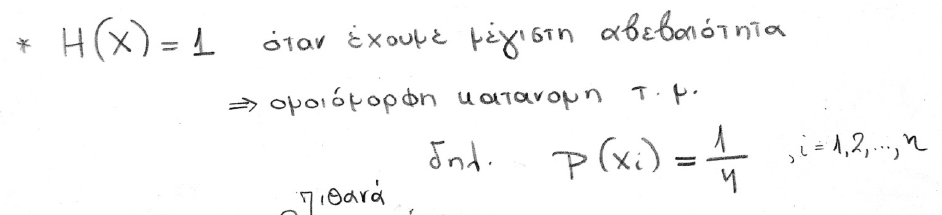 * H(X) = 1 όταν έχουμε μέγιστη αβεβαιότητα
⇒ ομοιόμορφη κατανομη τ.μ.
δηλ. P(xi) = 1/n , i = 1,2,...,n
πιθανά